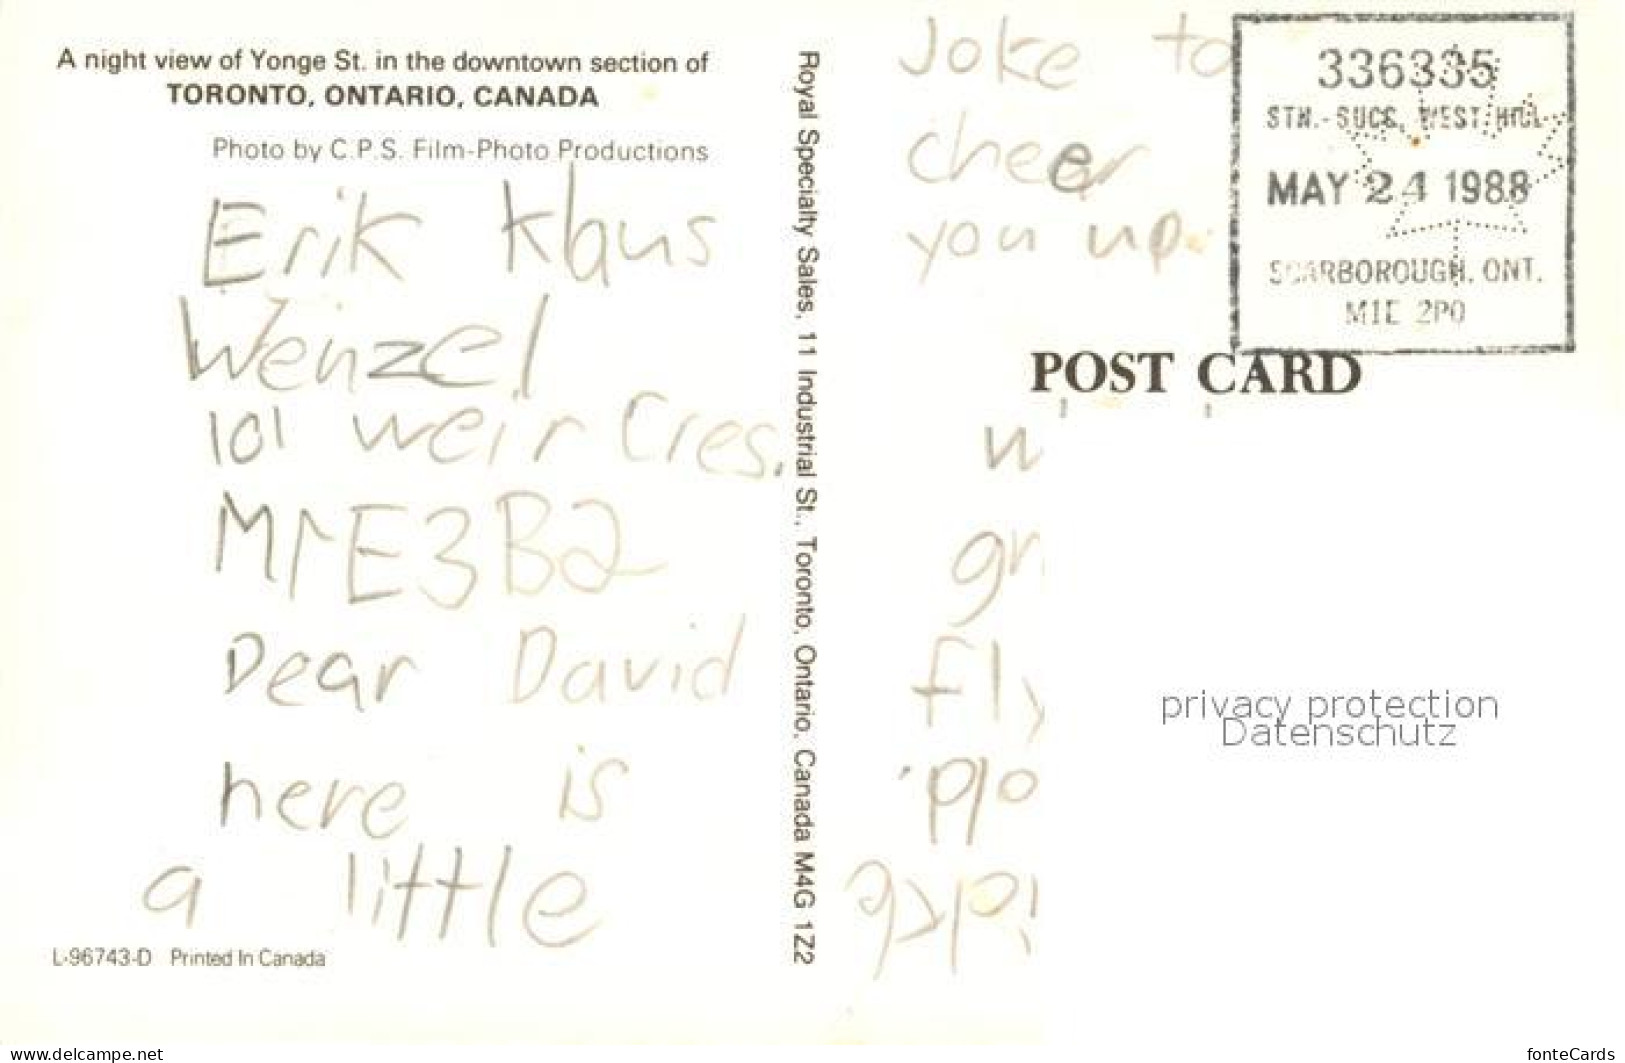 A night view of Yonge St. in the downtown section of
TORONTO, ONTARIO, CANADA
Photo by C.P.S. Film-Photo Productions
Erik Klaus
Wenzel
101 weir Cres.
M1E3B2
Dear David
here is
a little
L-96743-D Printed In Canada
Royal Specialty Sales, 11 Industrial St., Toronto, Ontario, Canada M4G 1Z2
Joke to
cheer
you up.
336335
STN.-SUCC. WEST HILL
MAY 24 1988
SCARBOROUGH, ONT.
M1E 2P0
POST CARD
w
gr
fly
privacy protection
Datenschutz
www.delcampe.net
fonteCards